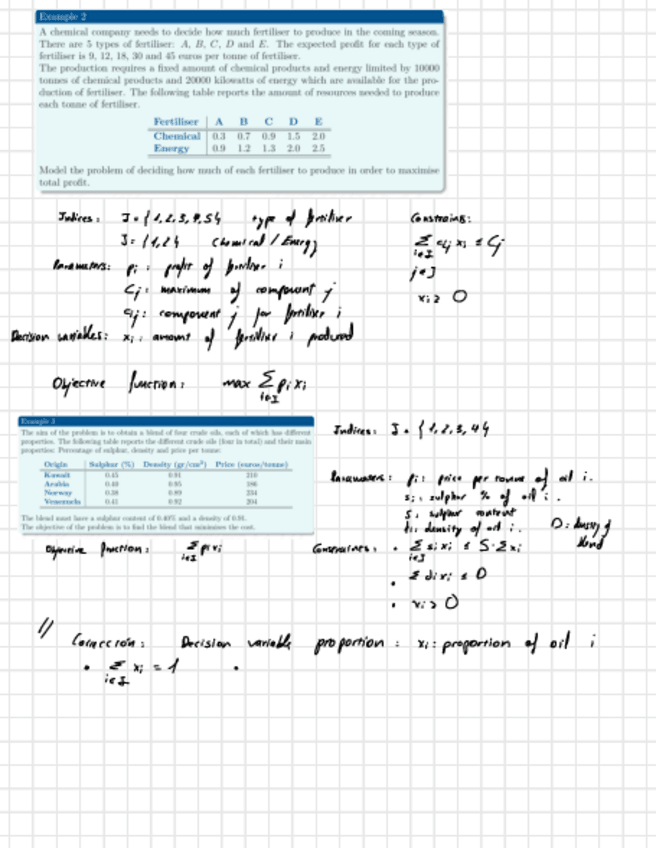 Example 2
A chemical company needs to decide how much fertiliser to produce in the coming season.
There are 5 types of fertiliser: A, B, C, D and E. The expected profit for each type of
fertiliser is 9, 12, 18, 30 and 45 euros per tonne of fertiliser.
The production requires a fixed amount of chemical products and energy limited by 10000
tonnes of chemical products and 20000 kilowatts of energy which are available for the pro-
duction of fertiliser. The following table reports the amount of resources needed to produce
each tonne of fertiliser.
Fertiliser A B C D E
Chemical 0.3 0.7 0.9 1.5 2.0
Energy 0.9 1.2 1.3 2.0 2.5
Model the problem of deciding how much of each fertiliser to produce in order to maximise
total profit.
Indices: I = {1,2,3,4,5} type of fertiliser
J = {1,2} Chemical / Energy
Parameters: pi: profit of fertiliser i
Cj: maximum of component j
aij: component j for fertiliser i
Decision variables: xi: amount of fertiliser i produced
Constrains:
Σ i∈I aij xi ≤ Cj
j∈J
xi ≥ 0
Objective function: max Σ i∈I pi xi
Example 3
The aim of the problem is to obtain a blend of four crude oils, each of which has different
properties. The following table reports the different crude oils (four in total) and their main
properties: Percentage of sulphur, density and price per tonne:
Origin Sulphur (%) Density (gr/cm³) Price (euros/tonne)
Kuwait 0.45 0.91 210
Arabia 0.40 0.95
Norway 0.38 0.89 234
Venezuela 0.41 0.92 204
The blend must have a sulphur content of 0.40% and a density of 0.91.
The objective of the problem is to find the blend that minimises the cost.
Indices: I = {1,2,3,4}
Parameters: pi: price per tonne of oil i.
si: sulphur % of oil i.
S: sulphur content
di: density of oil i. D: density of blend
Objective function: Σ i∈I pi xi
Constraints: • Σ i∈I si xi ≤ S·Σ xi
• Σ di xi ≤ D
• xi ≥ 0
// Corrección: Decision variable proportion: xi: proportion of oil i
• Σ i∈I xi = 1 •